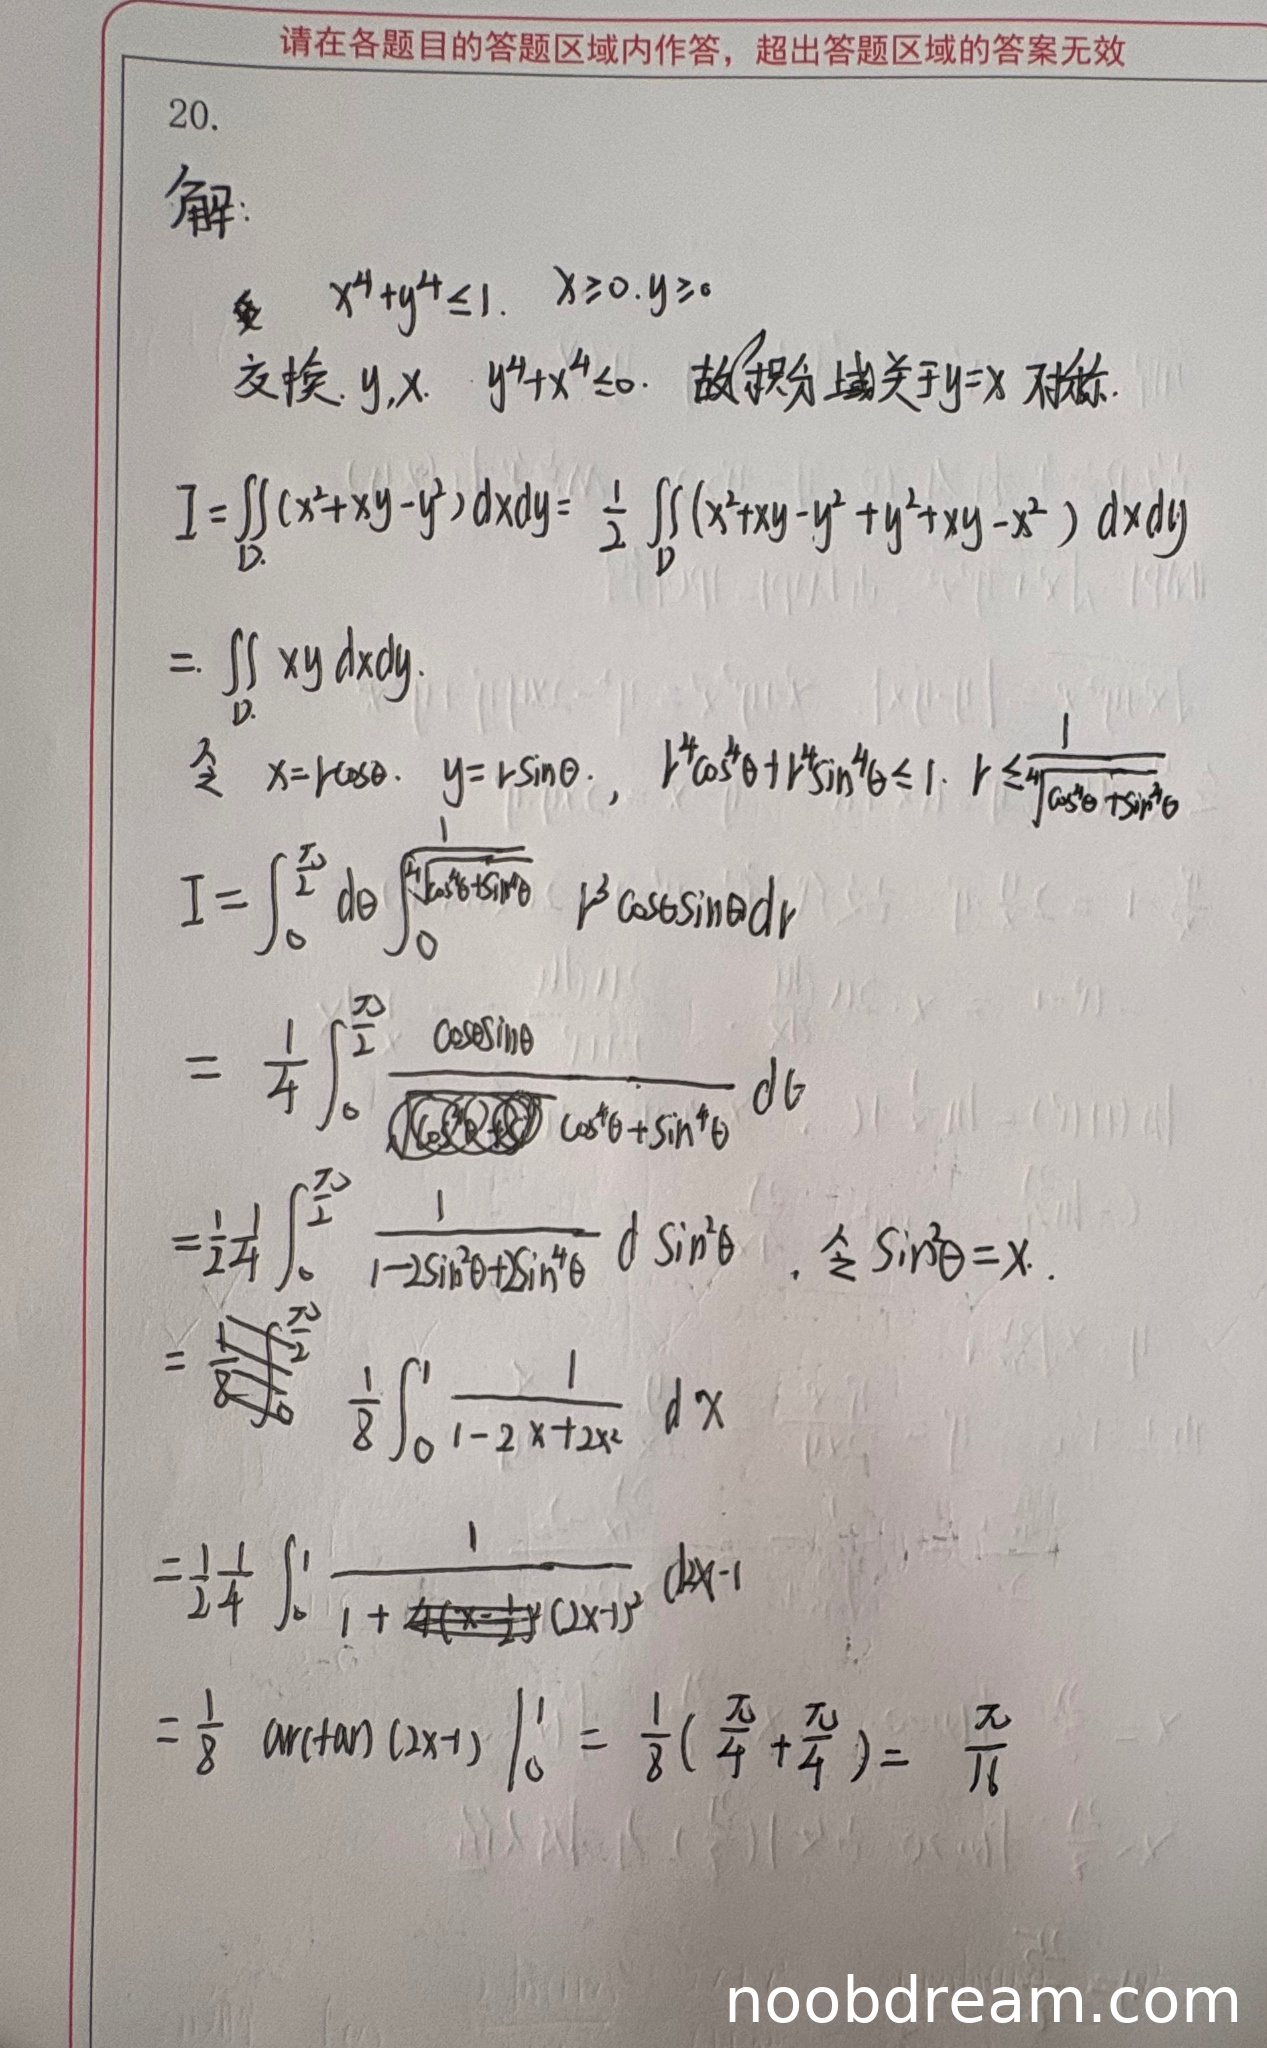 请在各题目的答题区域内作答，超出答题区域的答案无效
20.
解:
x⁴+y⁴≤1. x≥0.y≥0
交换.y,x. y⁴+x⁴≤0. 故积分域关于y=x 对称.
I=∬_D.(x²+xy-y²)dxdy= 1/2 ∬_D(x²+xy-y²+y²+xy-x²) dxdy
=. ∬_D. xy dxdy.
令 x=rcosθ. y=rsinθ. , r⁴cos⁴θ+r⁴sin⁴θ≤1. r≤1/∜(cos⁴θ+sin⁴θ)
I=∫_0^(π/2) dθ ∫_0^(1/∜(cos⁴θ+sin⁴θ)) r³cosθsinθdr
= 1/4 ∫_0^(π/2) cosθsinθ/(cos⁴θ+sin⁴θ) dθ
=1/2 1/4 ∫_0^(π/2) 1/(1-2sin²θ+2sin⁴θ) d sin²θ . 令 sin²θ=x.
= 1/8 ∫_0^1 1/(1-2x+2x²) dx
=1/2 1/4 ∫_0^1 1/(1+(2x-1)²) d2x-1
=1/8 arctan(2x-1) |_0^1 = 1/8(π/4+π/4)= π/16
noobdream.com